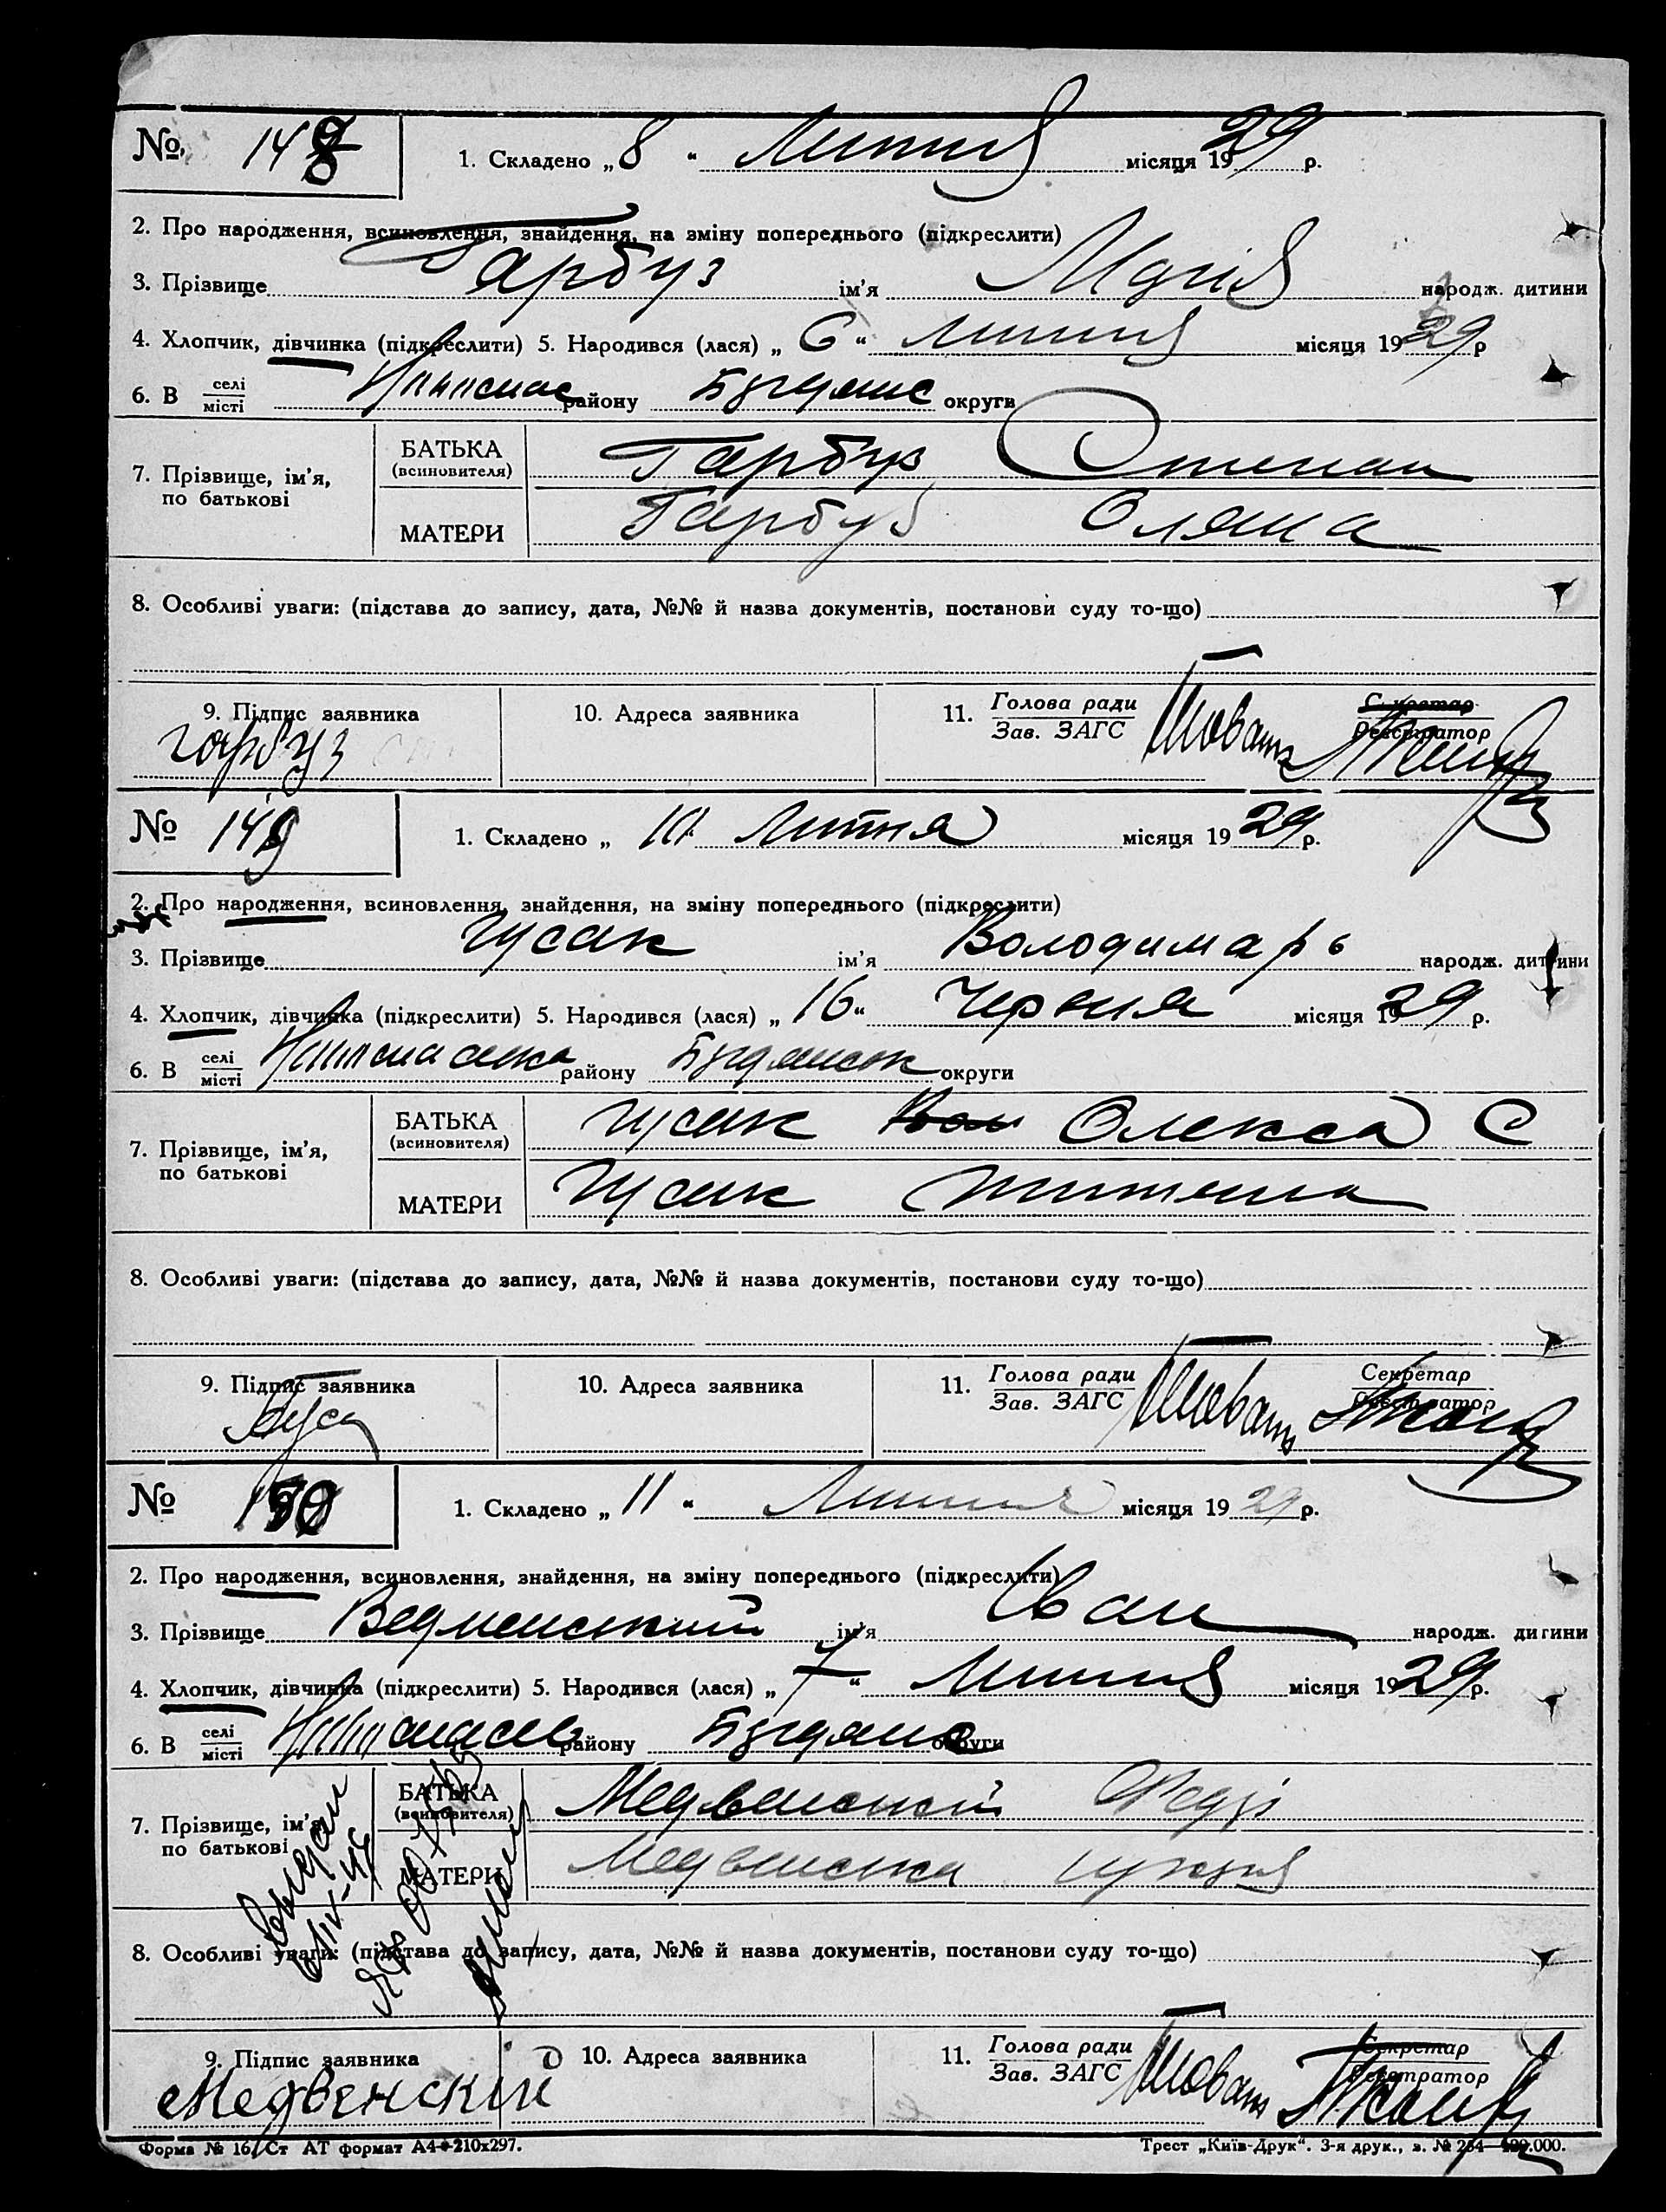 № 148 1. Складено „ 8 “ Липня місяця 1929 р.
2. Про народження, всиновлення, знайдення, на зміну попереднього (підкреслити)
3. Прізвище Гарбуз ім’я Марія народж. дитини
4. Хлопчик, дівчинка (підкреслити) 5. Народився (лася) „ 6 “ липня місяця 1929 р
6. В селі місті району округи
7. Прізвище, ім’я, по батькові
БАТЬКА (всиновителя) Гарбуз Степан
МАТЕРИ Гарбуз Оляна
8. Особливі уваги: (підстава до запису, дата, №№ й назва документів, постанови суду то-що)
9. Підпис заявника 10. Адреса заявника 11. Голова ради Зав. ЗАГС Секретар Реєстратор
гарбуз
№ 149 1. Складено „ 10 “ Липня місяця 1929 р.
2. Про народження, всиновлення, знайдення, на зміну попереднього (підкреслити)
3. Прізвище Гусак ім’я Володимарь народж. дитини
4. Хлопчик, дівчинка (підкреслити) 5. Народився (лася) „ 16 “ Червня місяця 1929 р.
6. В селі місті району округи
7. Прізвище, ім’я, по батькові
БАТЬКА (всиновителя) Гусак Олекса С
МАТЕРИ Гусак
8. Особливі уваги: (підстава до запису, дата, №№ й назва документів, постанови суду то-що)
9. Підпис заявника 10. Адреса заявника 11. Голова ради Зав. ЗАГС Секретар Реєстратор
№ 150 1. Складено „ 11 “ Липня місяця 1929 р.
2. Про народження, всиновлення, знайдення, на зміну попереднього (підкреслити)
3. Прізвище Ведменський ім’я Іван народж. дитини
4. Хлопчик, дівчинка (підкреслити) 5. Народився (лася) „ 7 “ Липня місяця 1929 р.
6. В селі місті району округи
7. Прізвище, ім’я, по батькові
БАТЬКА (всиновителя) Медвенський
МАТЕРИ Медвенська
8. Особливі уваги: (підстава до запису, дата, №№ й назва документів, постанови суду то-що)
9. Підпис заявника 10. Адреса заявника 11. Голова ради Зав. ЗАГС Секретар Реєстратор
Медвенский
Форма № 16. Ст АТ формат А4—210х297. Трест „Київ-Друк“. 3-я друк., з. № 264